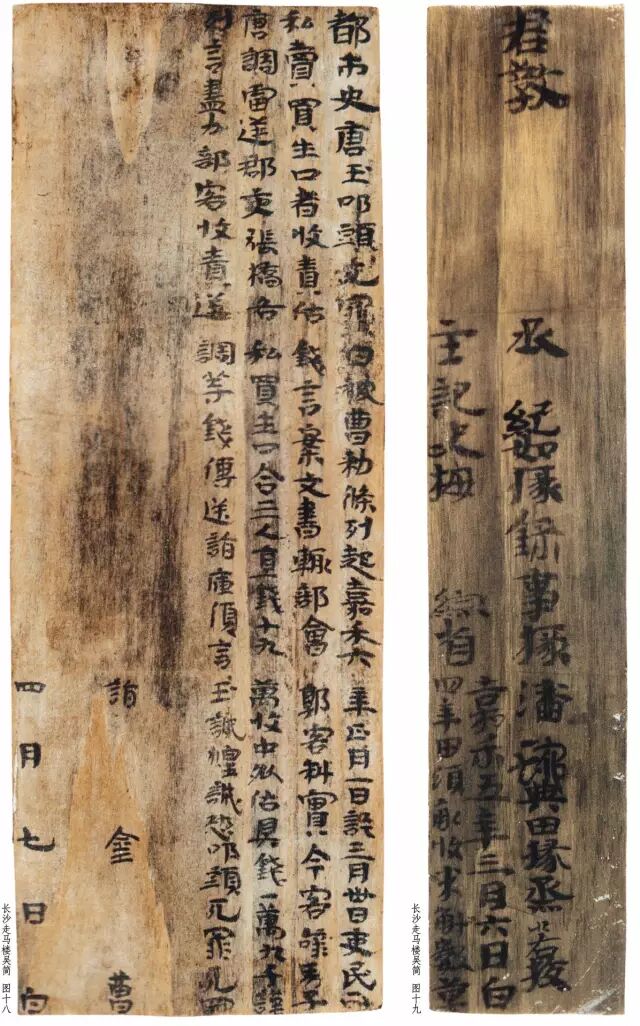 都市史唐玉叩頭死罪白被曹勑條列起嘉禾六年正月一日訖三月卅日吏民所
私賣買生口者收責估錢言案文書輒部會郭客料實今客辭男子
唐調雷逆郡吏張橋各私買生口合三人直錢十九萬收中外估具錢一萬九千謹
列言盡力部客收責逆調等錢傳送詣庫復言玉誠惶誠恐叩頭死罪死罪
詣金曹
四月七日白
长沙走马楼吴简 图十八
君教
丞紀如掾錄事掾潘琬典田掾烝若校
主記史梅綜省
嘉禾五年三月六日白
四年田頃畝收米斛數草
长沙走马楼吴简 图十九